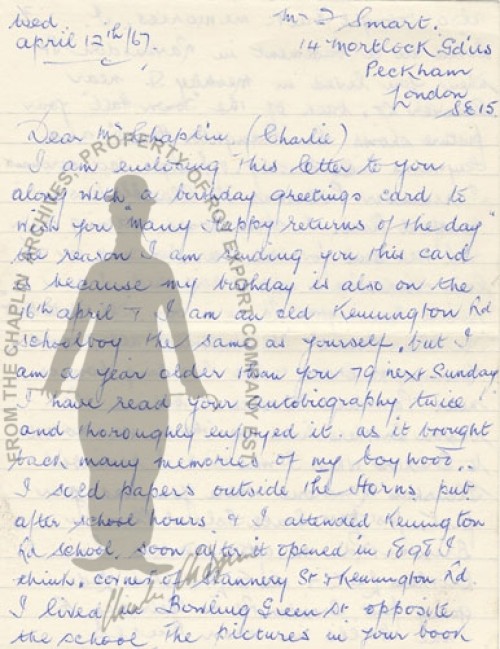 Wed
april 12th/67
Mr F Smart.
14 Mortlock Gdns
Peckham
London
SE15.
Dear Mr Chaplin (Charlie)
I am enclosing this letter to you
along with a birthday greetings card to
wish you "Many Happy returns of the day"
the reason I am sending you this card
is because my birthday is also on the
16th april & I am an old Kennington Rd
schoolboy the same as yourself. but I
am a year older than you 79 next Sunday
I have read your autobiography twice
and thoroughly enjoyed it. as it brought
back many memories of my boyhood..
I sold papers outside the Horns pub
after school hours. & I attended Kennington
Rd school. soon after it opened in 1898 I
think. corner of Stannery St & Kennington Rd.
I lived in Bowling Green St opposite
the school The pictures in your book
FROM THE CHAPLIN ARCHIVES, PROPERTY OF ROY EXPORT COMPANY EST.
Charlie Chaplin